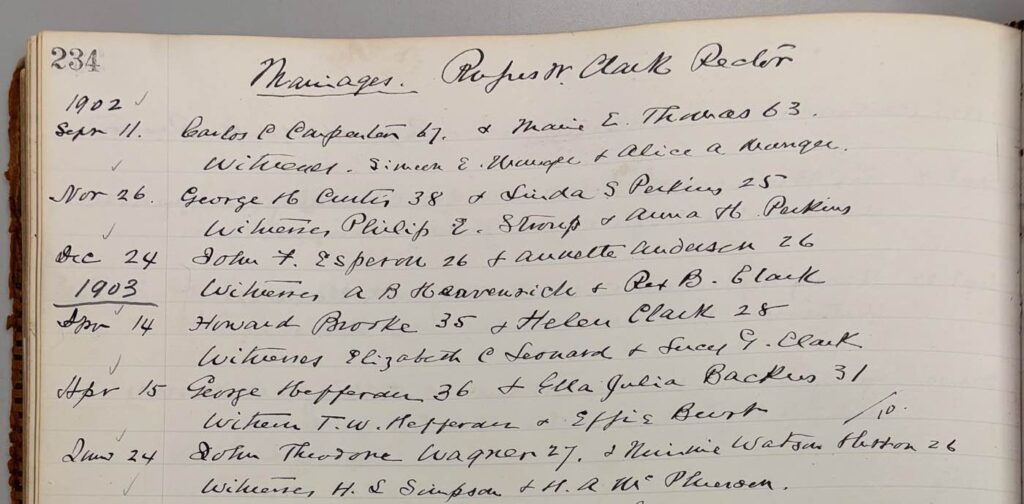 234
Marriages. Rufus W. Clark Rector
1902
Sepr 11. Carlos C Carpenter 67. & Marie E. Thomas 63.
Witnesses. Simeon E. Munger & Alice A Munger.
Nov 26. George H Curtis 38 & Linda S Perkins 25
Witnesses Philip E. Stroup & Anna H. Perkins
Dec 24 John F. Esperon 26 & Annette Anderson 26
1903 Witnesses A B Heavenrich & Rex B. Clark
Apr 14 Howard Brooke 35 & Helen Clark 28
Witnesses Elizabeth C Leonard & Lucy G. Clark
Apr 15 George Hefferan 36 & Ella Julia Backus 31
Witnesses T. W. Hefferan & Effie Burt /10.
June 24 John Theodore Wagner 27. & Minnie Watson 26
Witnesses H. S Simpson & H. A Mc Pherson.